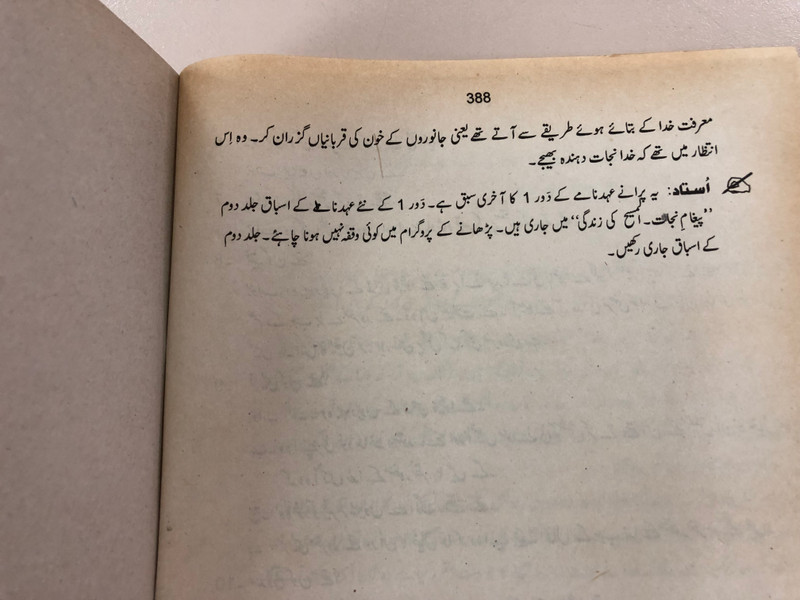 388
معرفت خدا کے بتائے ہوئے طریقے سے آتے تھے یعنی جانوروں کے خون کی قربانیاں گزران کر۔ وہ اِس
انتظار میں تھے کہ خدا نجات دہندہ بھیجے۔
اُستاد: یہ پرانے عہدنامے کے دَور 1 کا آخری سبق ہے۔ دَور 1 کے نئے عہدنامے کے اسباق جلد دوم
’’پیغامِ نجات۔ المسیح کی زندگی‘‘ میں جاری ہیں۔ پڑھانے کے پروگرام میں کوئی وقفہ نہیں ہونا چاہئے۔ جلد دوم
کے اسباق جاری رکھیں۔